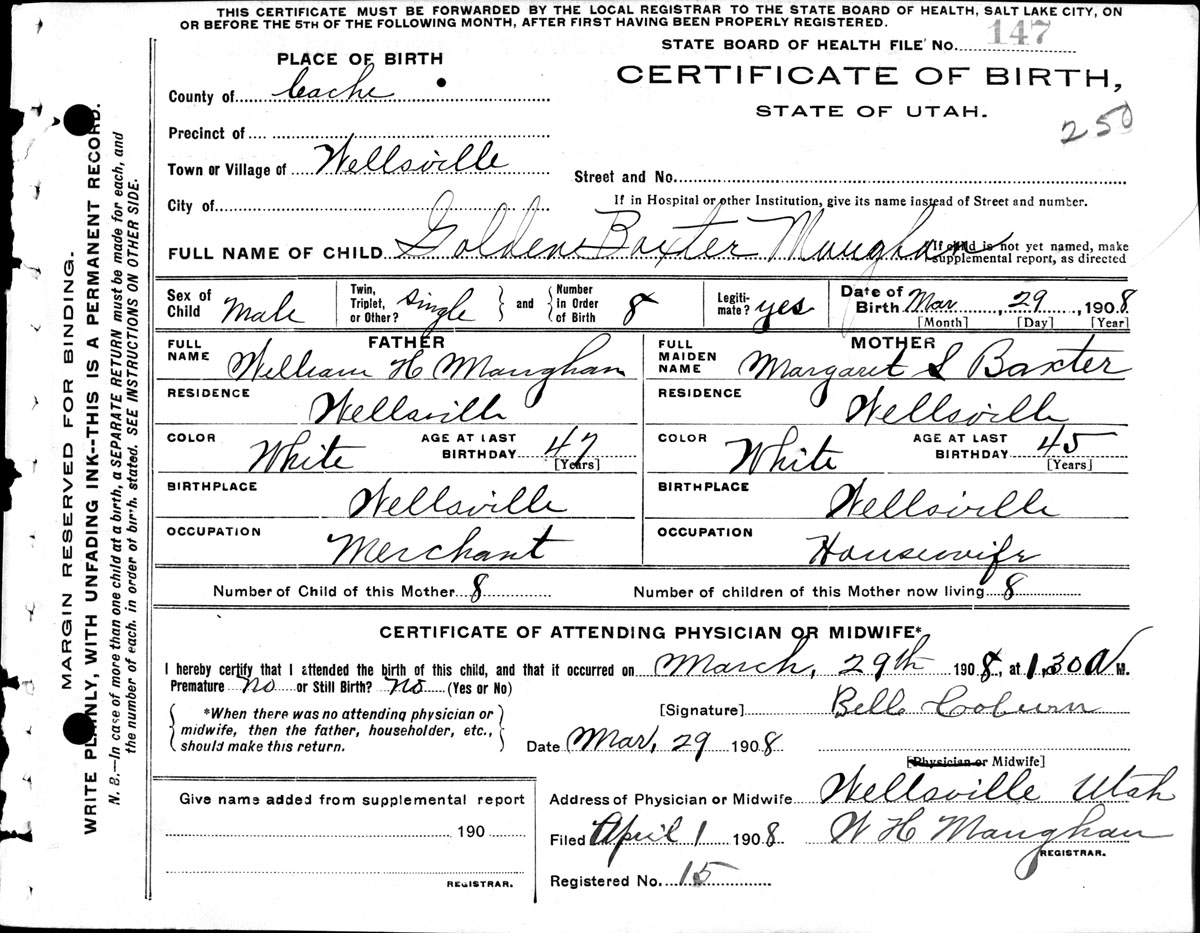 THIS CERTIFICATE MUST BE FORWARDED BY THE LOCAL REGISTRAR TO THE STATE BOARD OF HEALTH, SALT LAKE CITY, ON
OR BEFORE THE 5TH OF THE FOLLOWING MONTH, AFTER FIRST HAVING BEEN PROPERLY REGISTERED.
STATE BOARD OF HEALTH FILE No. 147
PLACE OF BIRTH
CERTIFICATE OF BIRTH,
STATE OF UTAH.
250
County of Cache
Precinct of
Town or Village of Wellsville
Street and No.
City of
If in Hospital or other Institution, give its name instead of Street and number.
FULL NAME OF CHILD Golden Baxter Maughan
If child is not yet named, make
supplemental report, as directed
Sex of Child Male
Twin, Triplet, or Other? single and Number in Order of Birth 8
Legitimate? yes
Date of Birth Mar 29, 1908
[Month] [Day] [Year]
FATHER
FULL NAME William H Maughan
RESIDENCE Wellsville
COLOR White AGE AT LAST BIRTHDAY 47 [Years]
BIRTHPLACE Wellsville
OCCUPATION Merchant
MOTHER
FULL MAIDEN NAME Margaret S Baxter
RESIDENCE Wellsville
COLOR White AGE AT LAST BIRTHDAY 45 [Years]
BIRTHPLACE Wellsville
OCCUPATION Housewife
Number of Child of this Mother 8 Number of children of this Mother now living 8
CERTIFICATE OF ATTENDING PHYSICIAN OR MIDWIFE*
I hereby certify that I attended the birth of this child, and that it occurred on March, 29th 1908, at 1,30 A M.
Premature no or Still Birth? no (Yes or No)
*When there was no attending physician or
midwife, then the father, householder, etc.,
should make this return.
[Signature] Bell Coburn
Date Mar, 29 1908
[Physician or Midwife]
Give name added from supplemental report
190
REGISTRAR.
Address of Physician or Midwife Wellsville Utah
Filed April 1 1908 W H Maughan
REGISTRAR.
Registered No. 15
MARGIN RESERVED FOR BINDING.
WRITE PLAINLY, WITH UNFADING INK--THIS IS A PERMANENT RECORD.
N. B.—In case of more than one child at a birth, a SEPARATE RETURN must be made for each, and
the number of each, in order of birth, stated. SEE INSTRUCTIONS ON OTHER SIDE.